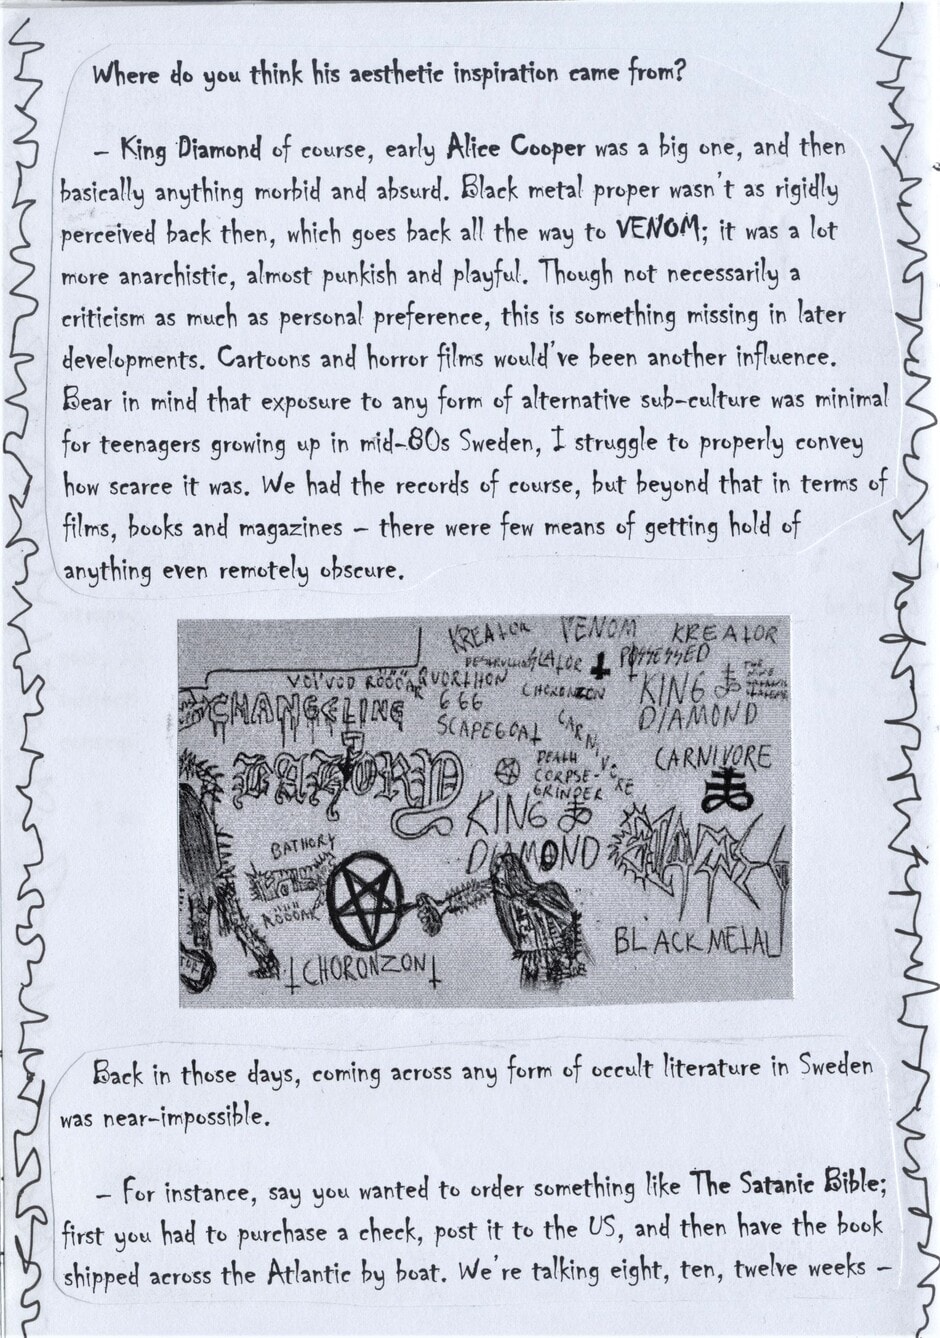 Where do you think his aesthetic inspiration came from?
– King Diamond of course, early Alice Cooper was a big one, and then
basically anything morbid and absurd. Black metal proper wasn't as rigidly
perceived back then, which goes back all the way to VENOM; it was a lot
more anarchistic, almost punkish and playful. Though not necessarily a
criticism as much as personal preference, this is something missing in later
developments. Cartoons and horror films would've been another influence.
Bear in mind that exposure to any form of alternative sub-culture was minimal
for teenagers growing up in mid-80s Sweden, I struggle to properly convey
how scarce it was. We had the records of course, but beyond that in terms of
films, books and magazines – there were few means of getting hold of
anything even remotely obscure.
KREATOR VENOM KREATOR
POSSESSED
VOIVOD RÖÖÖAR QUORTHON CHORONZON KING
DIAMOND
CHANGELING 666
SCAPEGOAT CARNIVORE
DEATH
CORPSE-
GRINDER
CARNIVORE
KING
DIAMOND
BATHORY
BLACK METAL
CHORONZON
Back in those days, coming across any form of occult literature in Sweden
was near-impossible.
– For instance, say you wanted to order something like The Satanic Bible;
first you had to purchase a check, post it to the US, and then have the book
shipped across the Atlantic by boat. We're talking eight, ten, twelve weeks –